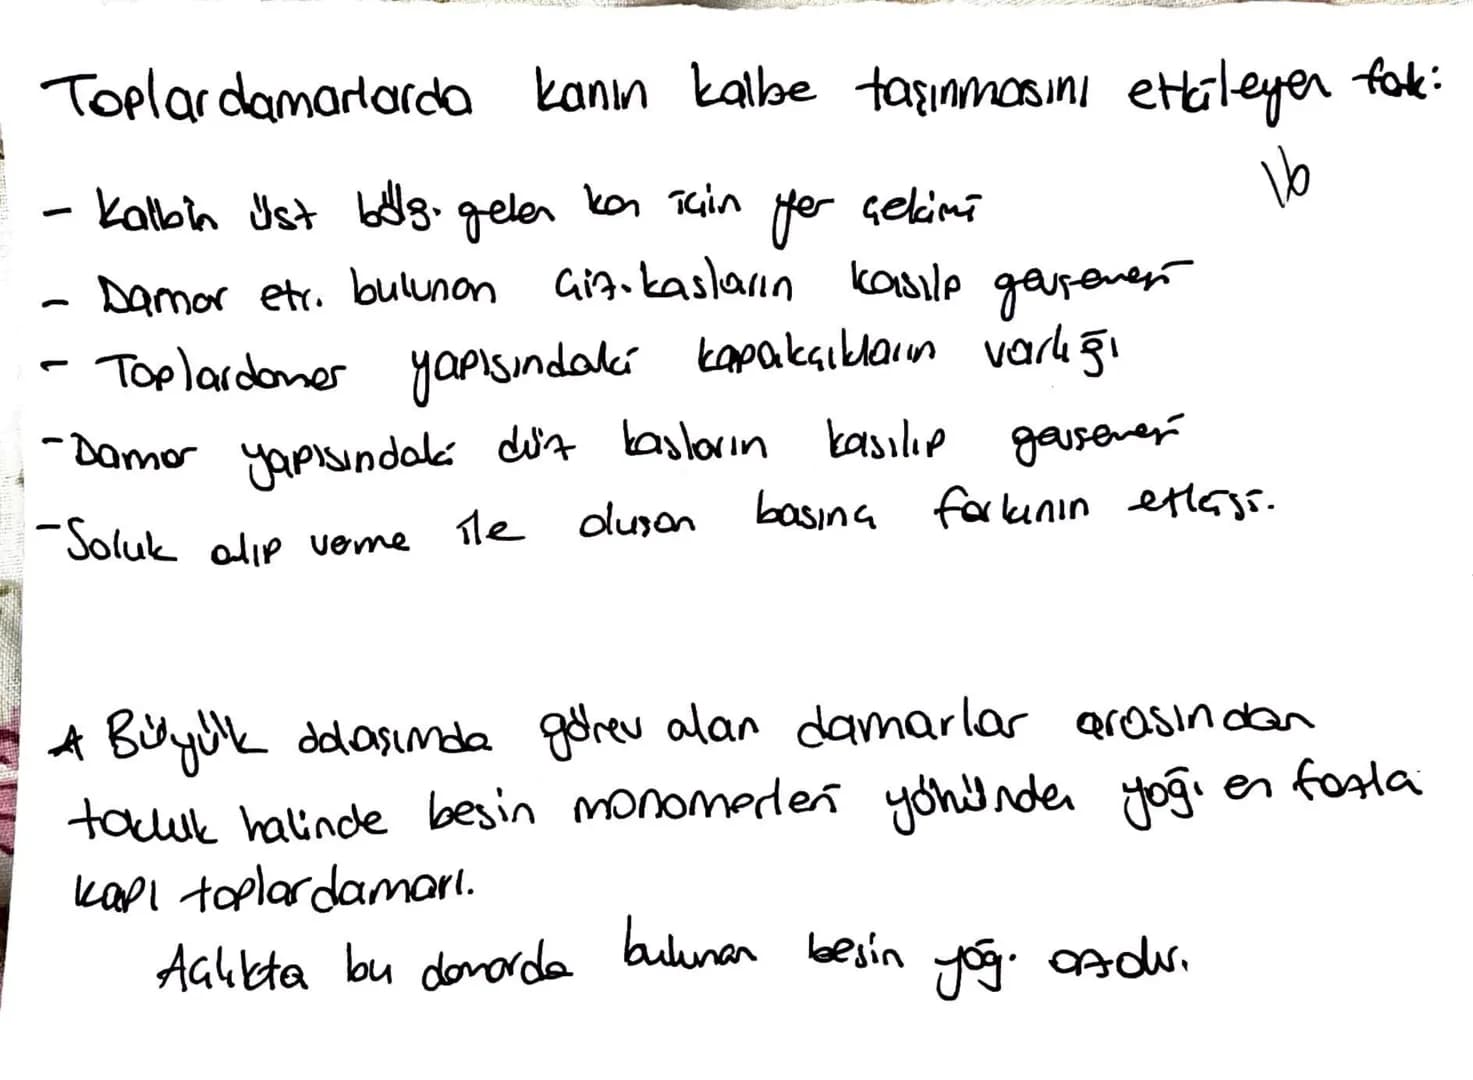 Toplardamarlarda kanın kalbe taşınmasını etkileyen fak:
16
- Kalbin üst bölg. gelen kan için yer çekimi
- Damar etr. bulunan Çiz. kasların kasılp gevşemesi
- Toplardamar yapısındaki kapakçıkların varlığı
- Damar yapısındaki düz kasların kasılıp gevşemesi
- Soluk alıp verme ile oluşan basınç farkının etkisi.
Büyük dolaşımda görev alan damarlar arasından
tokluk halinde besin monomerleri yönünden yoğ. en fazla
kapı toplardamarı.
Açlıkta bu damarda bulunan besin yoğ. azdır.